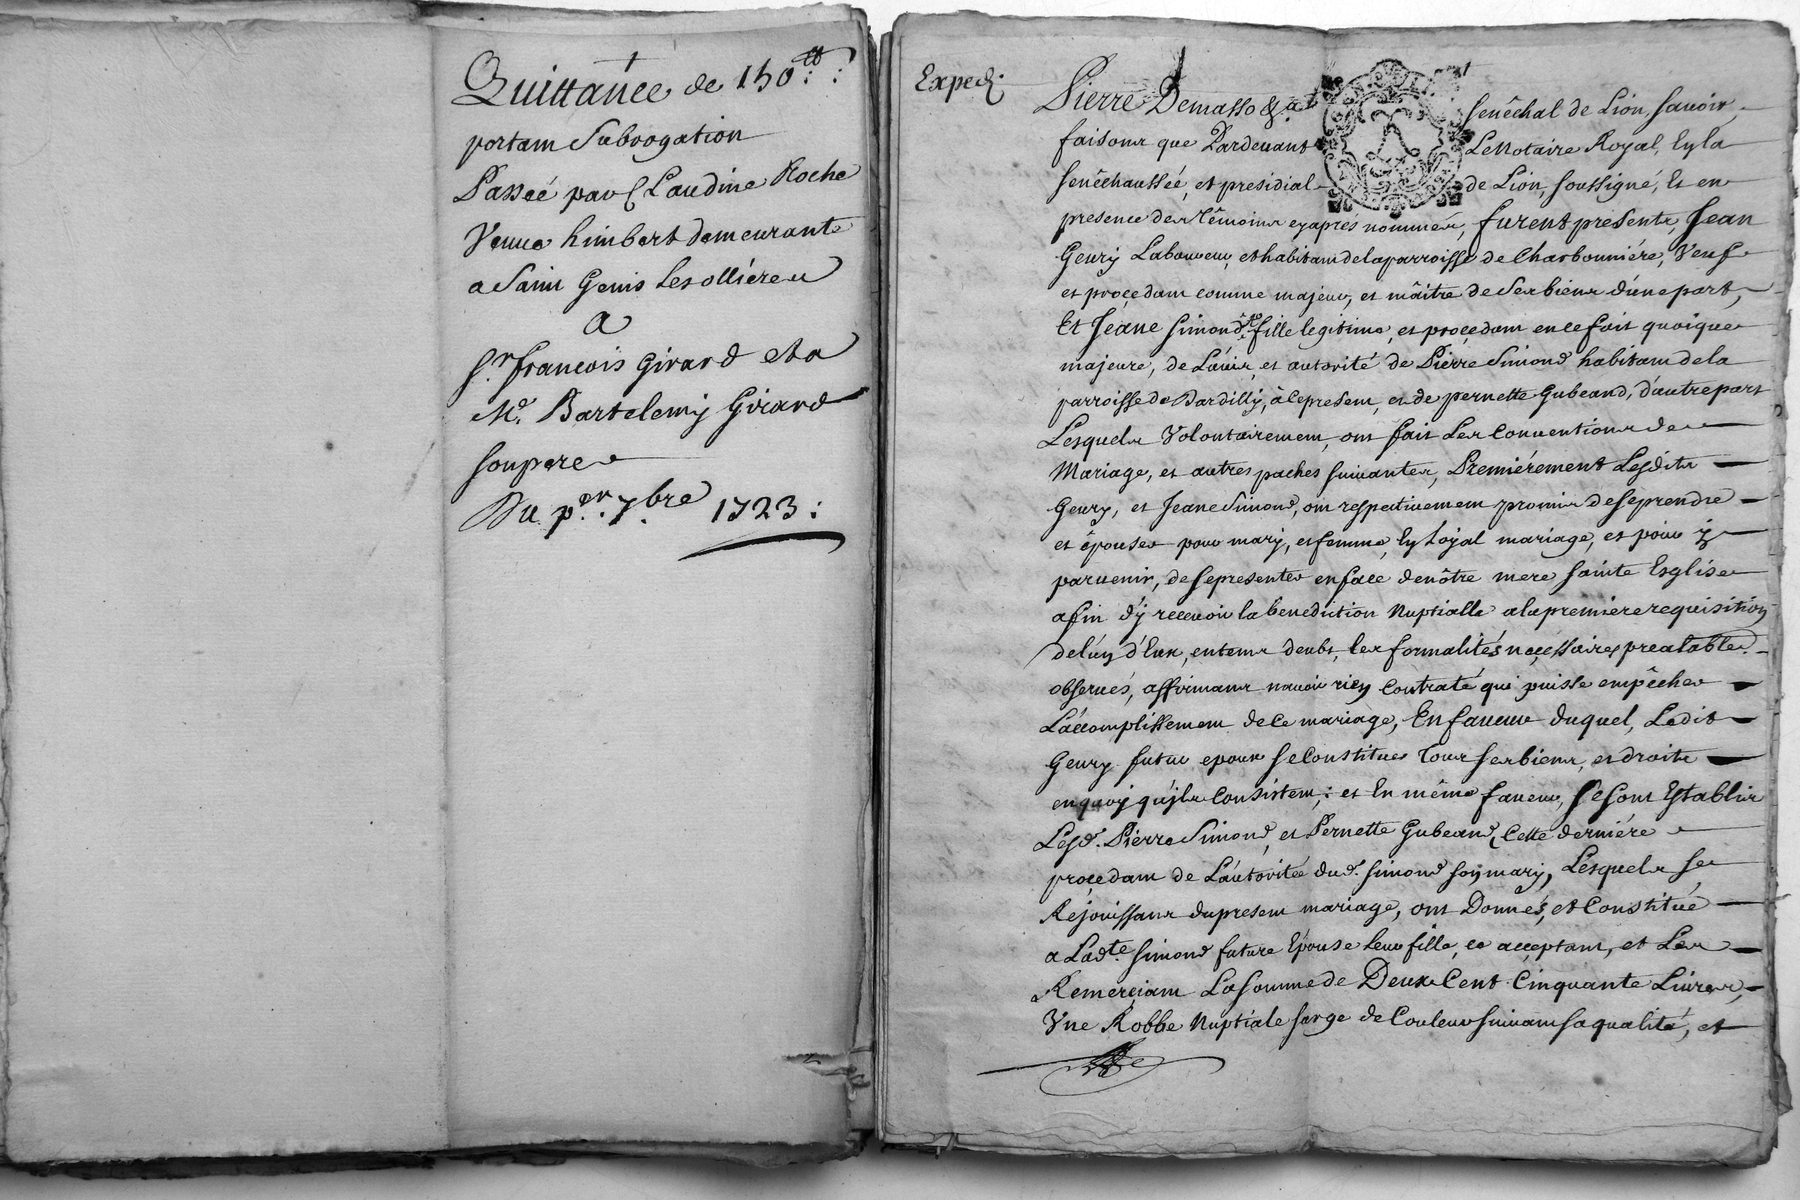 Quittance de 150 ₶ :
portant Subrogation
Passée par Claudine Roche
Veuve himbert demeurante
a Saint Genis les ollières
a
Sr. francois Girard et a
Me. Bartelemy Girard
son pere
Du per. 7bre 1723 :
Exped.
Pierre Demasso &a. senêchal de Lion, savoir
faisons que Pardevant Le Notaire Royal, En la
senêchaussée, et presidial de Lion, soussigné, Et en
presence des têmoins cy après nommés, furent presents, Jean
Geury Laboureur, et habitant de la parroisse de Charbonniére, Veuf
et procedant comme majeur, et maître de ses biens d'une part,
Et Jeane Simond fille legitime, et procedant en ce fait quoique
majeure, de L'avis, et autorité de Pierre Simond habitant de la
parroisse de Dardilly, à ce present, et de pernette Gubeand, d'autre part
Lesquels Volontairement, ont fait Les Conventions de
Mariage, et autres paches suivantes, Premiérement Lesdits
Geury, et Jeane Simond, ont respectivement promis de se prendre
et épouser pour mary, et femme, En Loyal mariage, et pour y
parvenir, de se presenter en face de nôtre mere sainte Eglise
afin d'y recevoir la benediction Nuptialle a la premiere requisition
de l'un d'Eux, entems deubt, les formalités nécéssaires prealables
observés, affirmans n'avoir rien Contraté qui puisse empêcher
L'accomplissement de ce mariage, En faveur duquel, Ledit
Geury futur epoux se Constitue Tous ses biens, et droits
en quoy qu'ils Consistent, : et En même faveur, se sont Establis
Lesd. Pierre Simond, et Pernette Gubeand, Cette derniére
procedant de L'autoritée dud. Simond son mary, Lesquels se
Rejouissans du present mariage, ont Donnés, et Constitué
a Ladte. Simond future Epouse Leur fille, ce acceptant, et Les
Remerciant La somme de Deux Cent Cinquante Livres,
Une Robbe Nuptiale sarge de Couleur suivant sa qualité, et